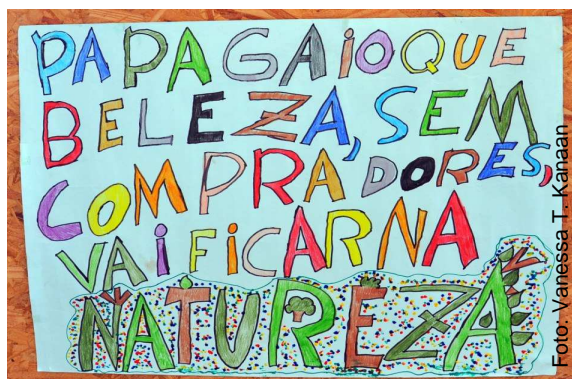 PAPAGAIO QUE
BELEZA, SEM
COMPRADORES,
VAI FICAR NA
NATUREZA
Foto: Vanessa T. Kanaan